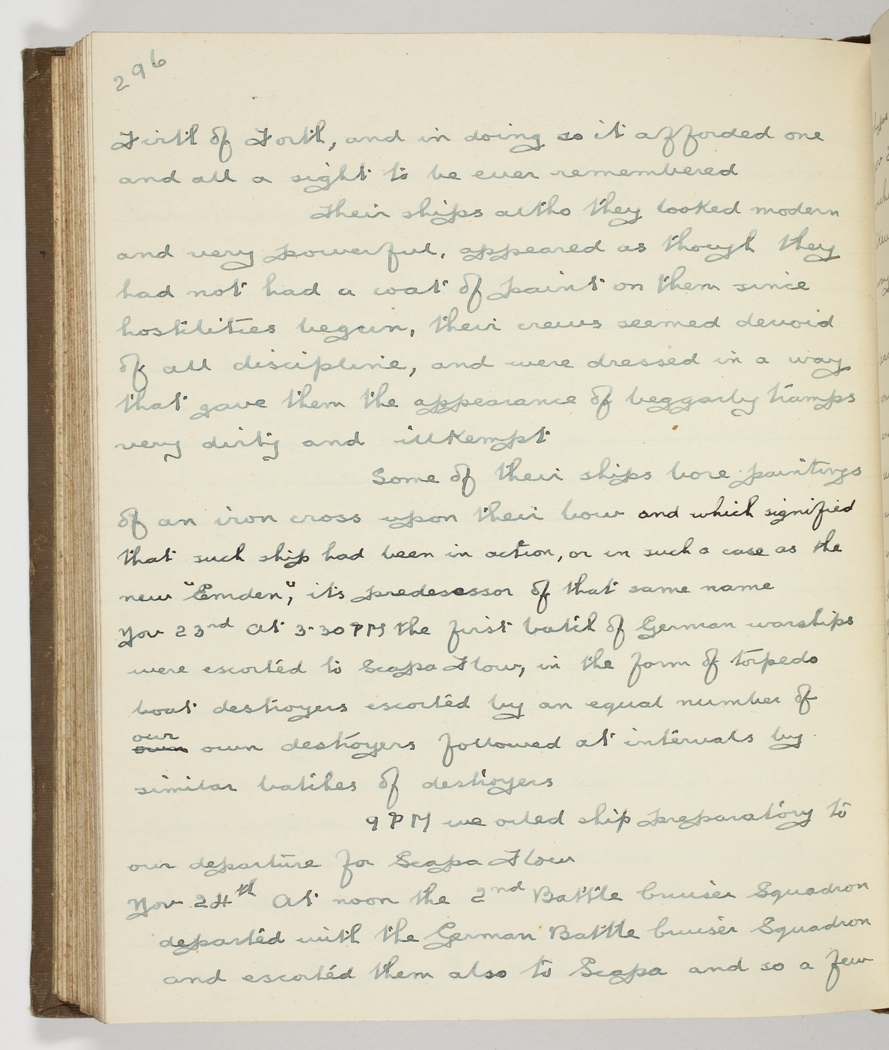 296
Firth of Forth, and in doing so it afforded one
and all a sight to be ever remembered
Their ships altho they looked modern
and very powerful, appeared as though they
had not had a coat of paint on them since
hostilities begun, their crews seemed devoid
of all discipline, and were dressed in a way
that gave them the appearance of beggarly tramps
very dirty and illkempt
Some of their ships bore paintings
of an iron cross upon their bow and which signified
that such ship had been in action, or in such a case as the
new "Emden", its predesessor of that same name
Nov 23rd At 3-30 PM the first batch of German warships
were escorted to Scapa Flow, in the form of torpedo
boat destroyers escorted by an equal number of
our
own own destroyers followed at intervals by
similar batches of destroyers
9 PM we oiled ship preparatory to
our departure for Scapa Flow
Nov 24th At noon the 2nd Battle Cruiser Squadron
departed with the German Battle Cruiser Squadron
and escorted them also to Scapa and so a few